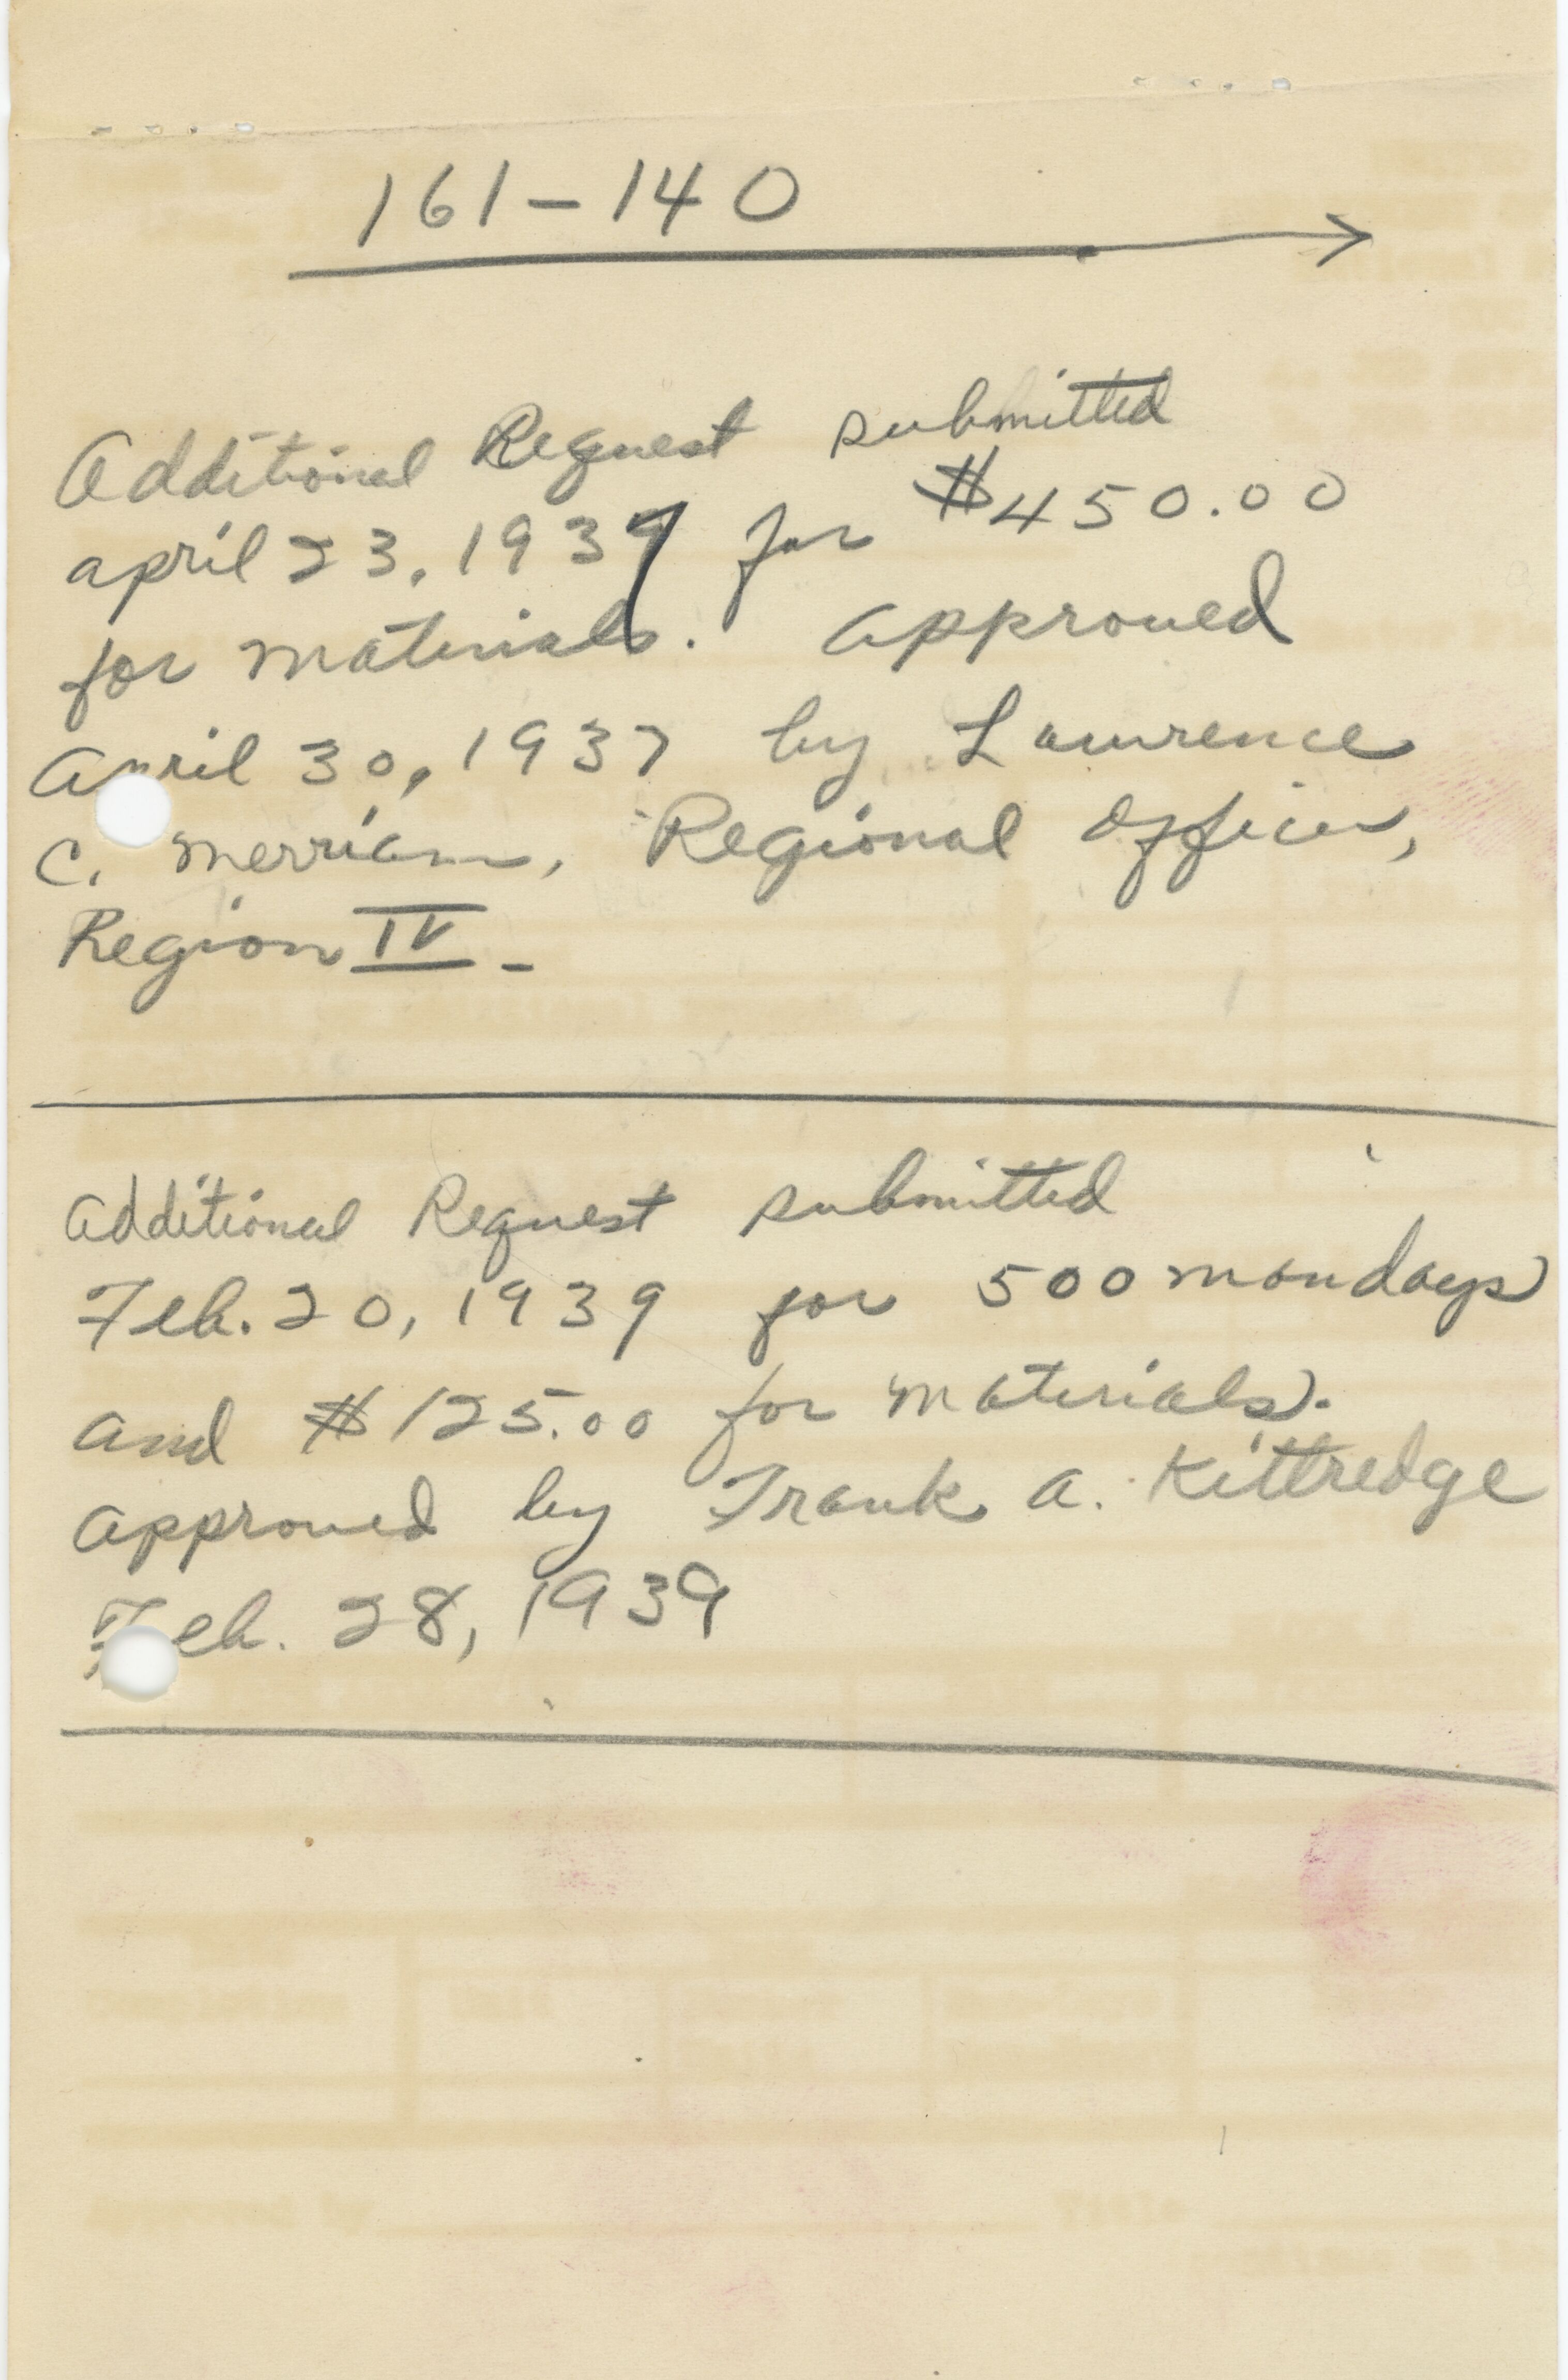 161-140
Additional Request submitted
april 23, 1937 for $450.00
for materials. approved
April 30, 1937 by Lawrence
C. Merriam, Regional Officer,
Region IV -
Additional Request submitted
Feb. 20, 1939 for 500 mandays
and $125.00 for materials.
approved by Frank A. Kittredge
Feb. 28, 1939